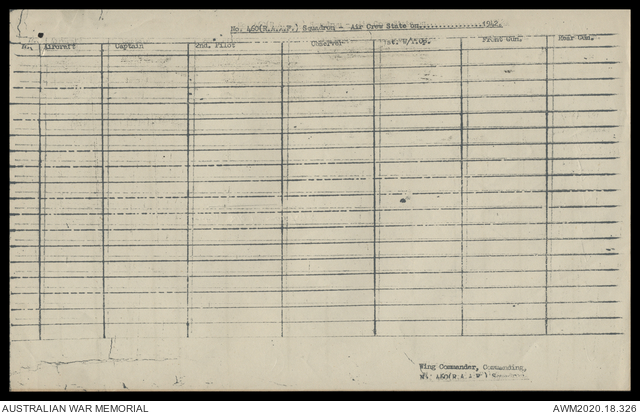 No. 460(R.A.A.F.) Squadron - Air Crew State on................1942.
No. Aircraft Captain 2nd. Pilot Observer 1st. W/T.Op. Front Gun. Rear Gun.
Wing Commander, Commanding,
No. 460(R.A.A.F.) Squadron
AUSTRALIAN WAR MEMORIAL AWM2020.18.326